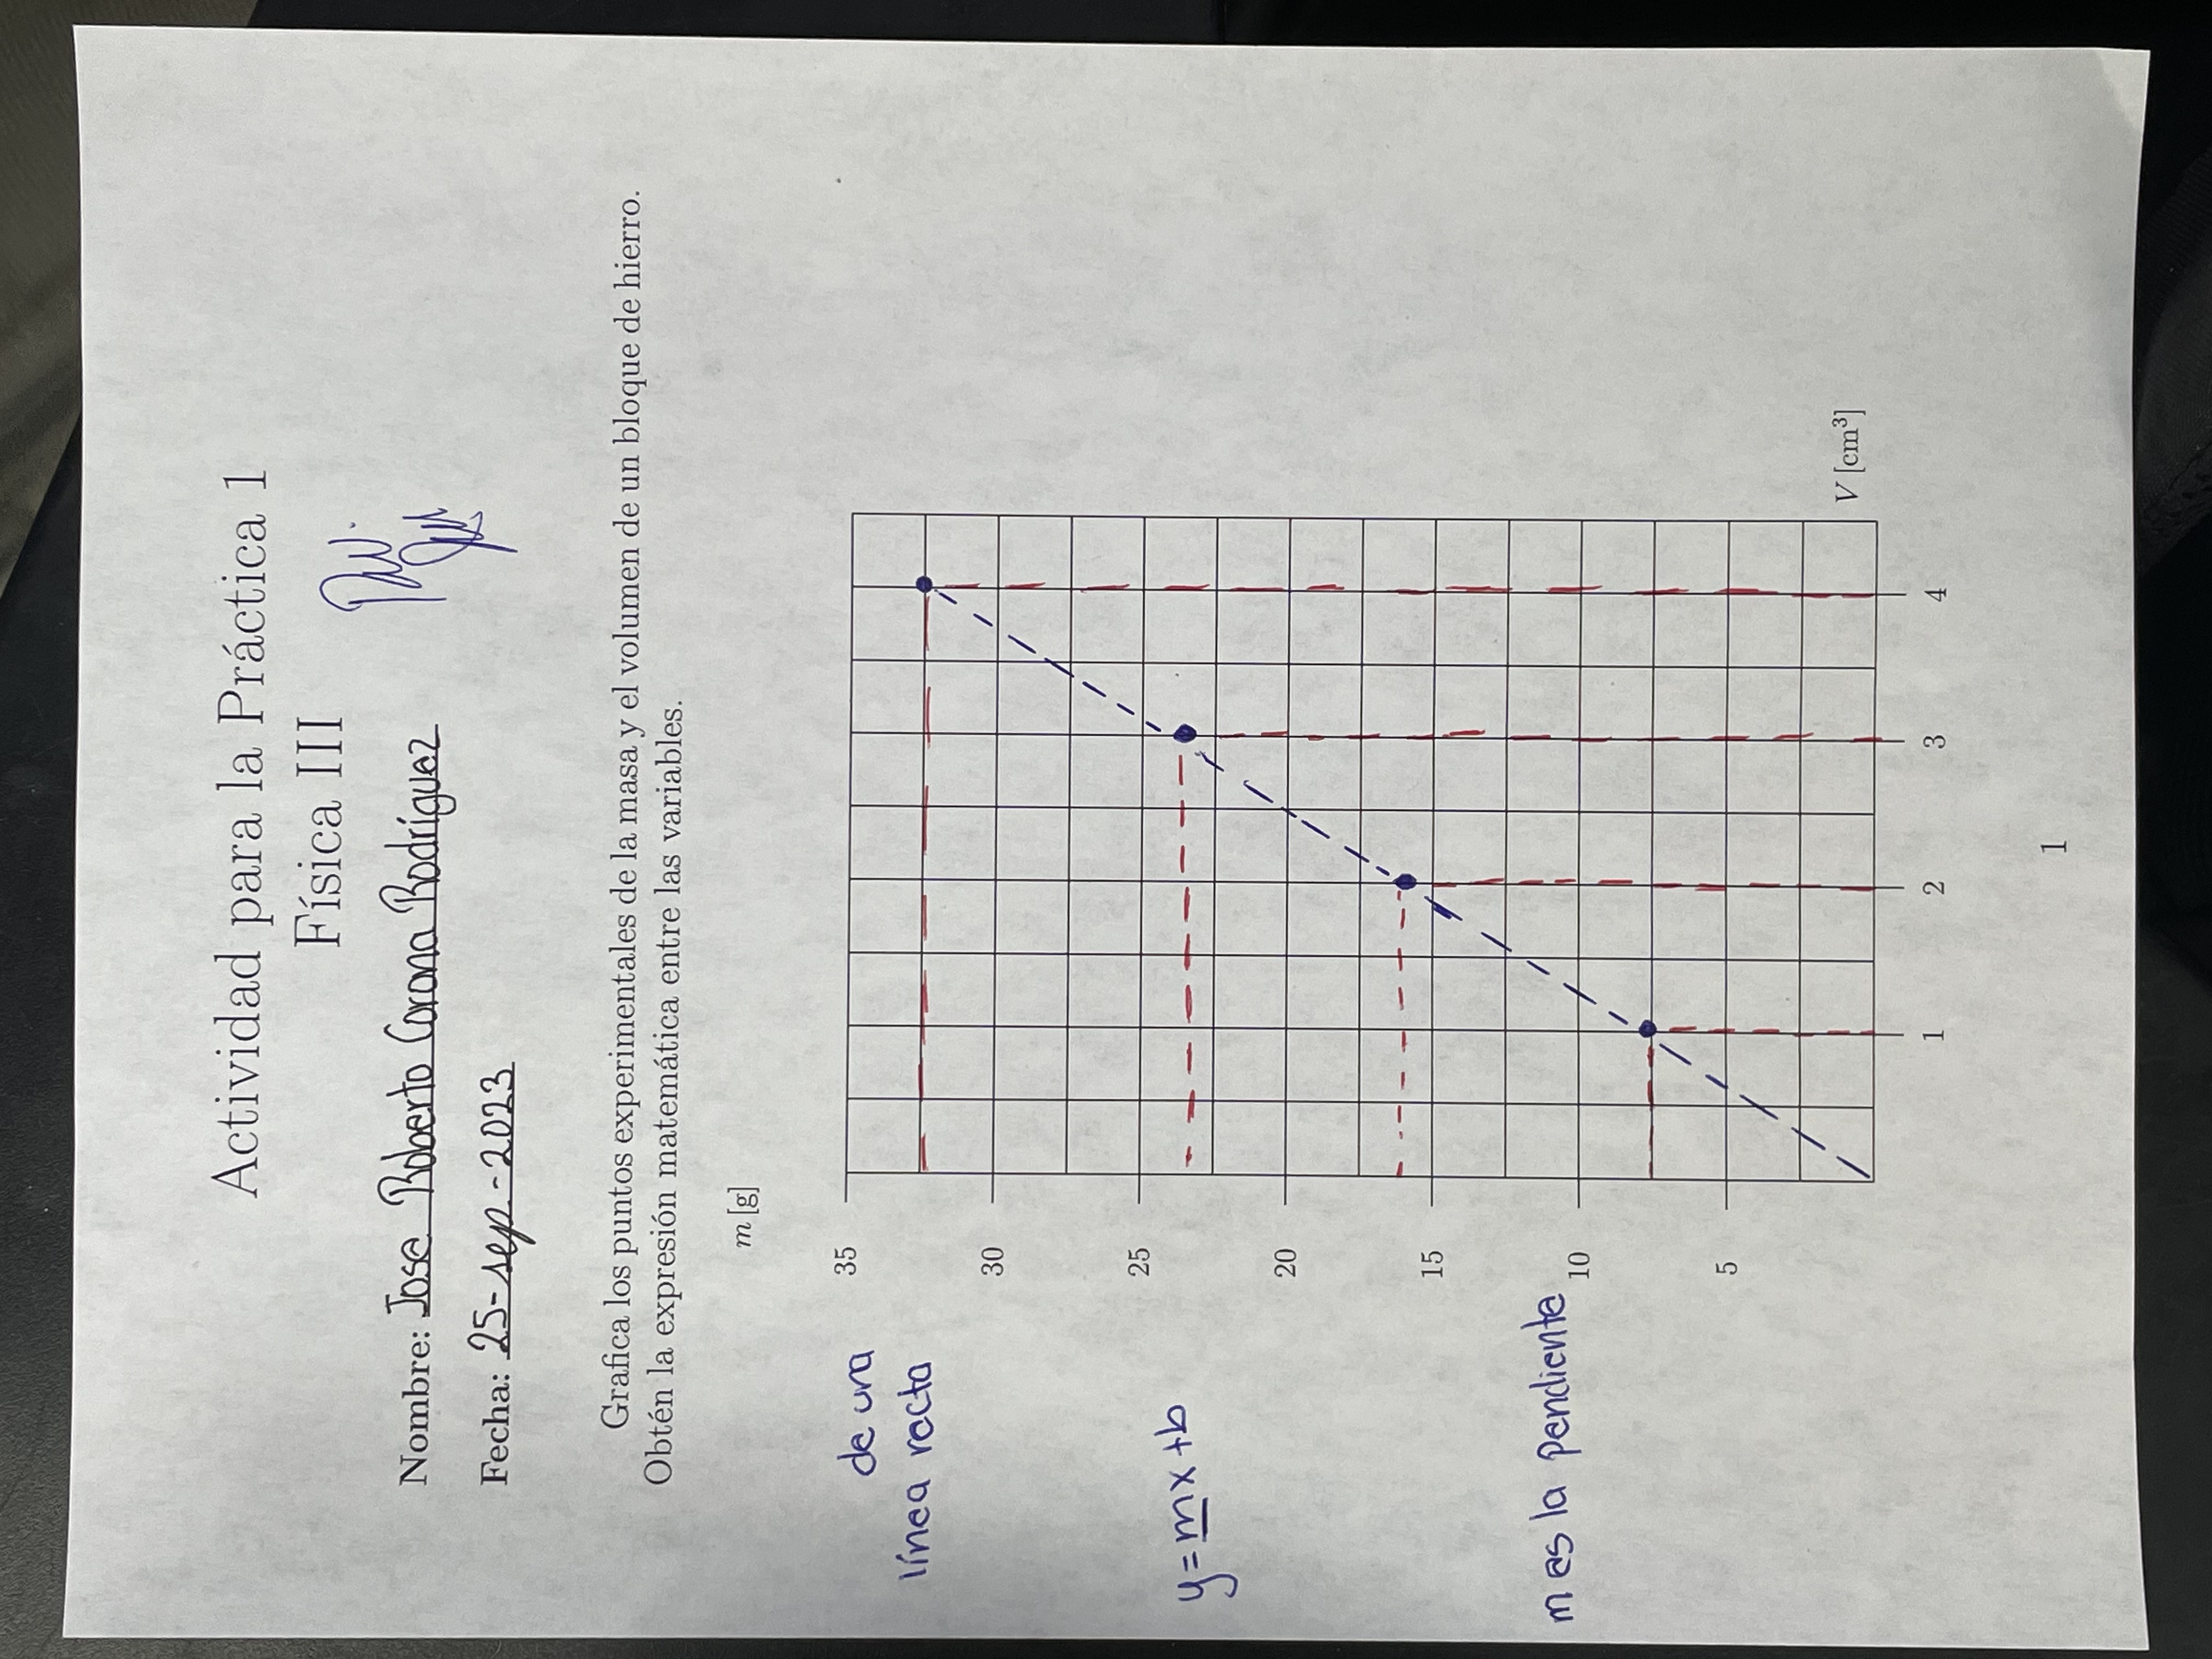 Actividad para la Práctica 1
Física III
Nombre: Jose Roberto Corona Rodríguez
Fecha: 25-sep-2023
Grafica los puntos experimentales de la masa y el volumen de un bloque de hierro.
Obtén la expresión matemática entre las variables.
m [g]
de una
línea recta
y=mx+b
m es la pendiente
35
30
25
20
15
10
5
V [cm³]
1 2 3 4
1